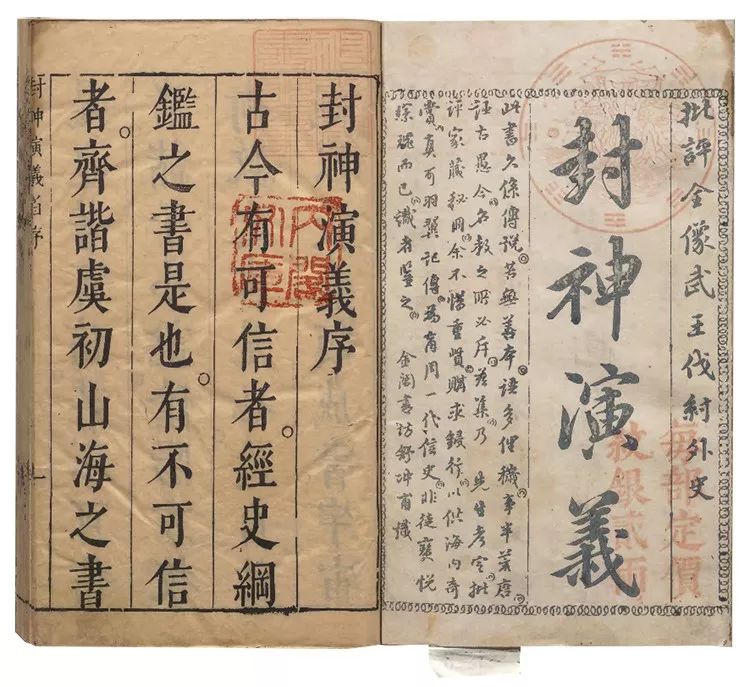 批評全像武王伐紂外史
封神演義
每部定價
紋銀貳兩
此書久係傳說。苦無善本。語多俚穢。事半荒唐。
評古愚今。名教之所必斥。茲集乃 先生考定批
評家藏秘冊。余不惜重貲購求鋟行。以供海內奇
賞。真可羽翼記傳。為商周一代信史。非徒寶悅
琛瑰而已。識者鑒之。 金閶書坊舒冲甫識
封神演義序
古今有可信者。經史綱
鑑之書是也。有不可信
者。齊諧虞初山海之書
封神演義首序 一
內閣文庫